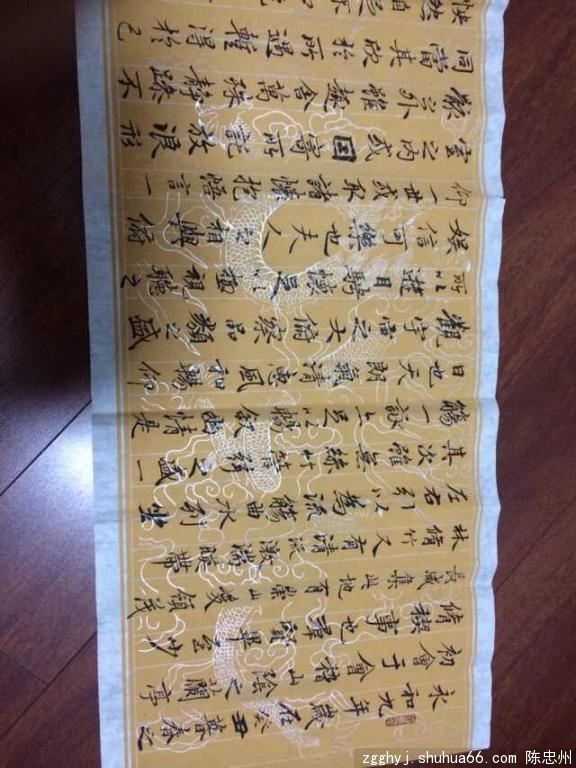 永和九年歲在癸丑暮春之
初會于會稽山陰之蘭亭
脩禊事也群賢畢至少
長咸集此地有崇山峻領茂
林脩竹又有清流激湍暎帶
左右引以為流觴曲水列坐
其次雖無絲竹管弦之盛一
觴一詠亦足以暢敘幽情是
日也天朗氣清惠風和暢仰
觀宇宙之大俯察品類之盛
所以遊目騁懷足以極視聽之
娛信可樂也夫人之相與俯
仰一世或取諸懷抱悟言一
室之內或因寄所託放浪形
骸之外雖趣舍萬殊靜躁不
同當其欣於所遇暫得於己
快然自足不
zgghyj.shuhua66.com 陈忠州